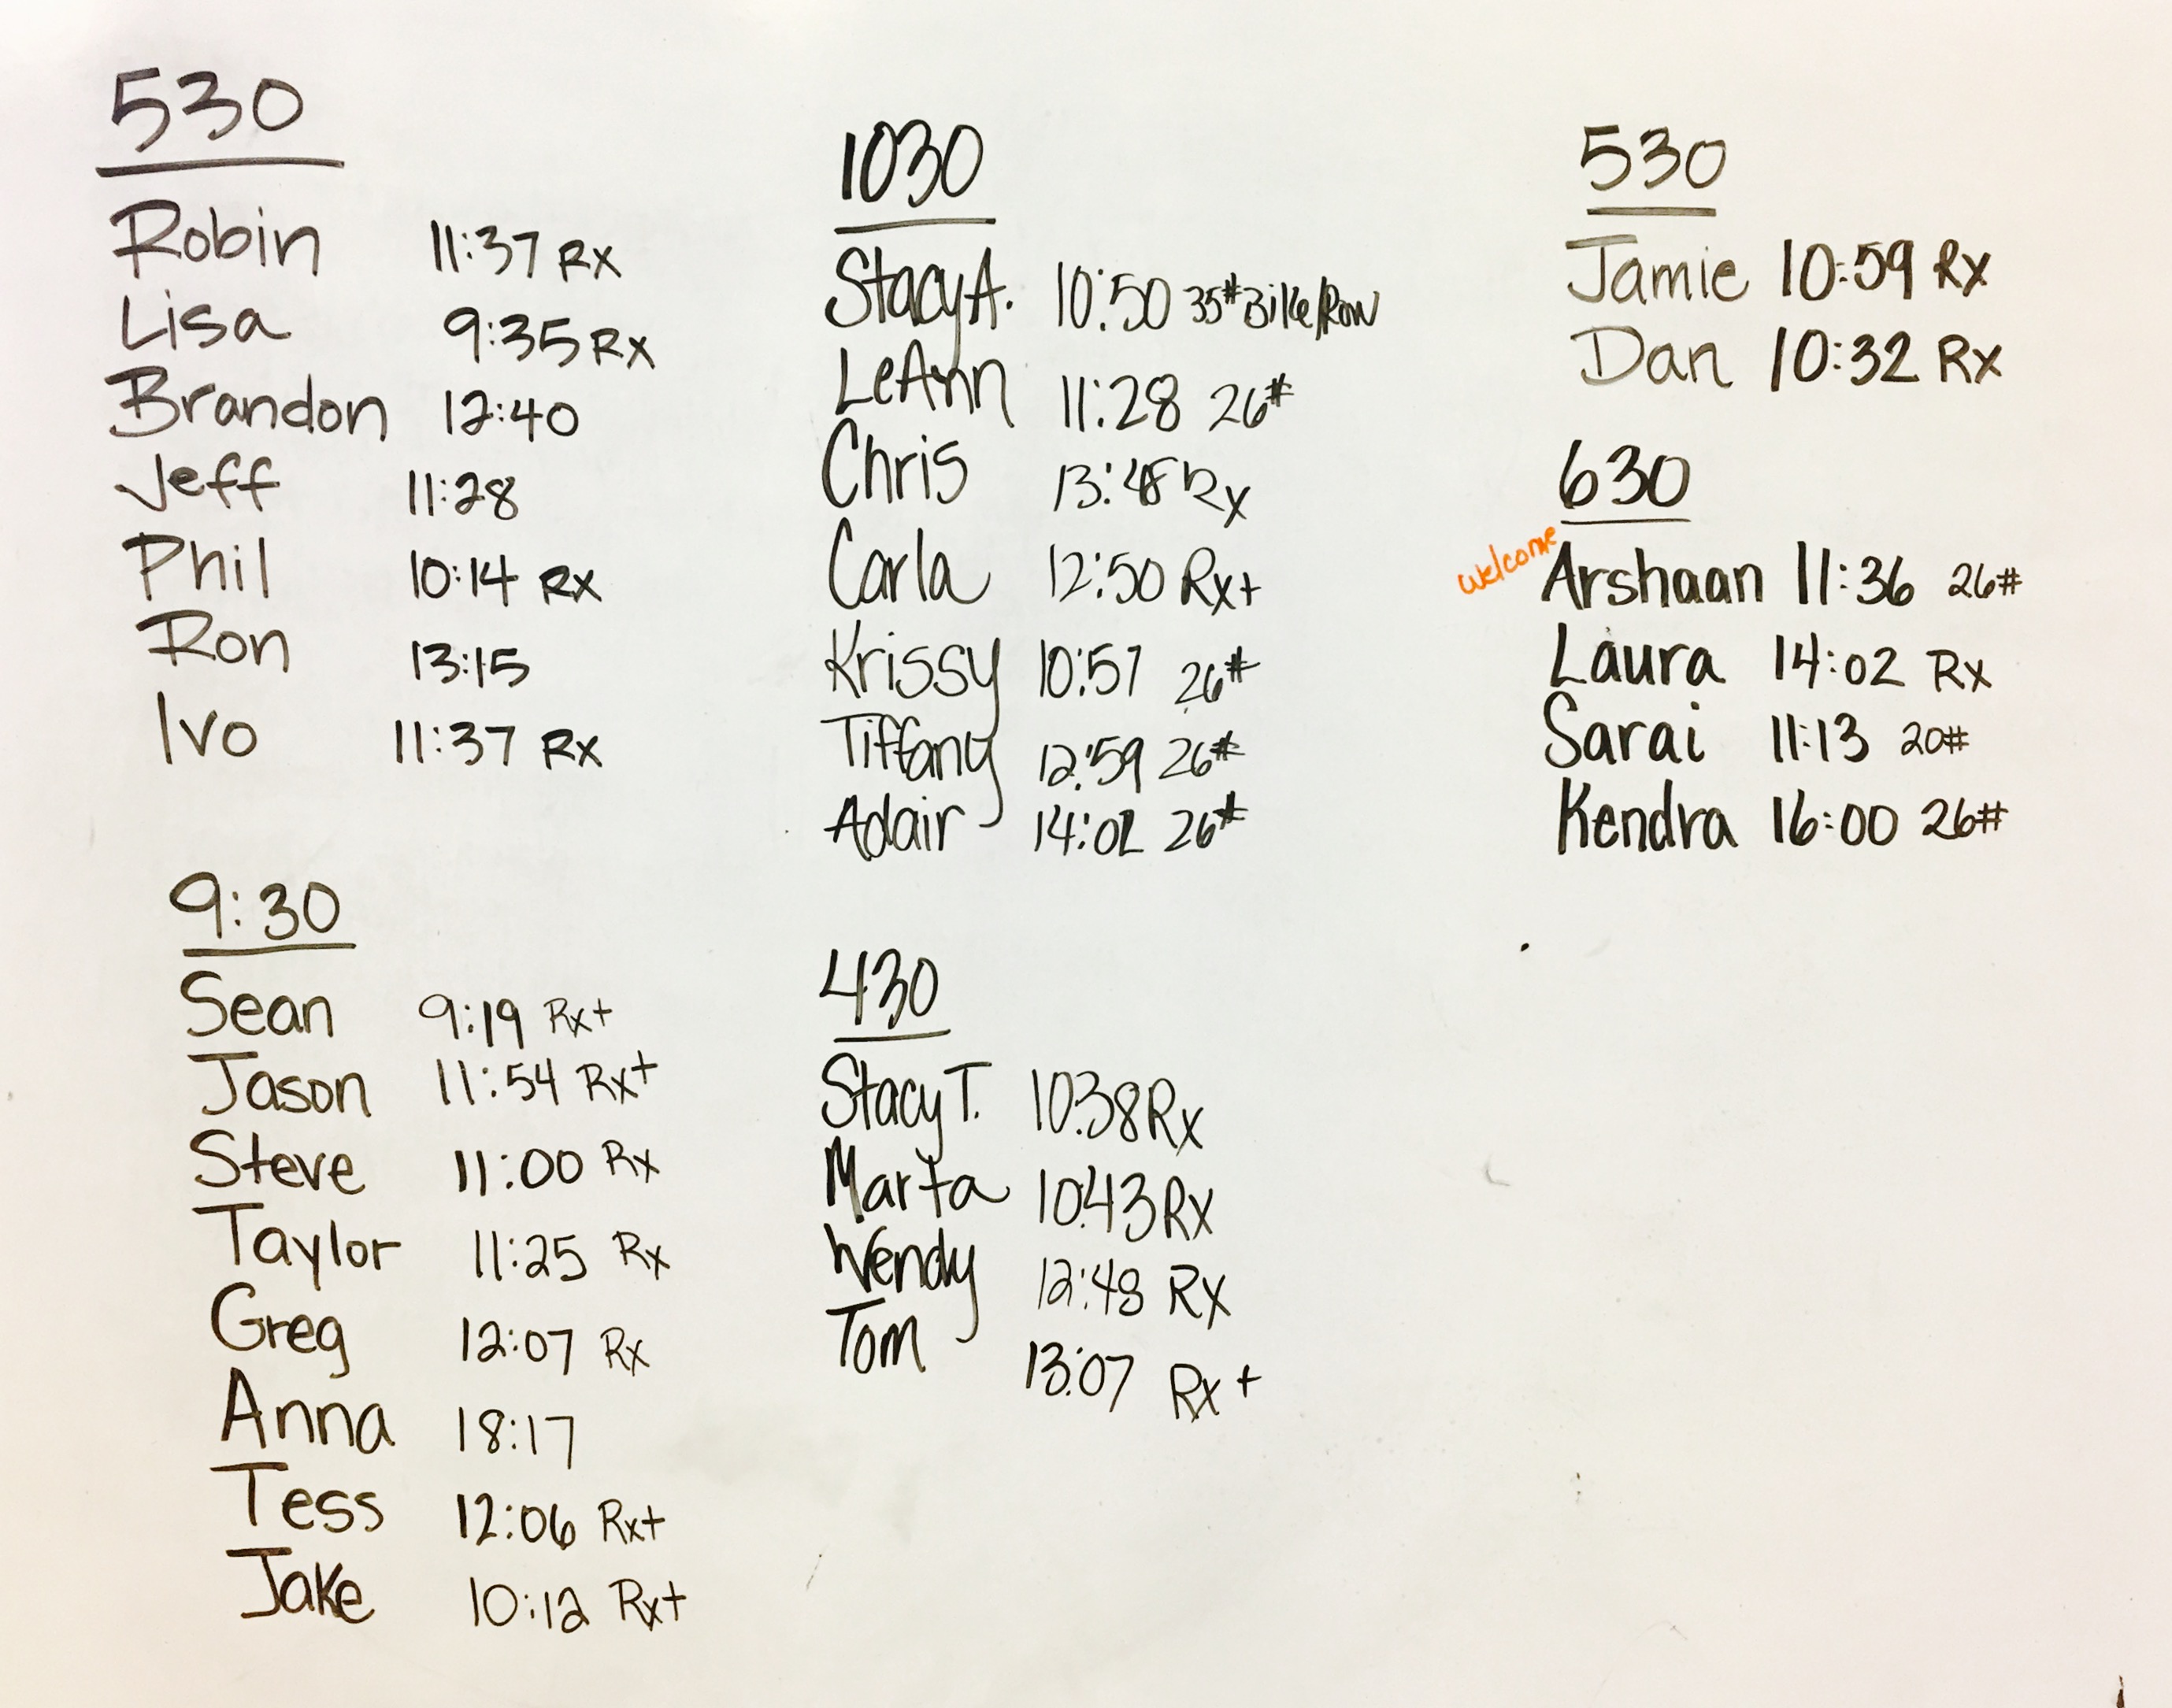 530
Robin 11:37 Rx
Lisa 9:35 Rx
Brandon 12:40
Jeff 11:28
Phil 10:14 Rx
Ron 13:15
Ivo 11:37 Rx
9:30
Sean 9:19 Rx+
Jason 11:54 Rx+
Steve 11:00 Rx
Taylor 11:25 Rx
Greg 12:07 Rx
Anna 18:17
Tess 12:06 Rx+
Jake 10:12 Rx+
1030
Stacy A. 10:50 35# Bike/Row
LeAnn 11:28 26#
Chris Rx
Carla 12:50 Rx+
Krissy 10:57 26#
Tiffany 12:59 26#
Adair 14:02 26#
430
Stacy T. 10:38 Rx
Marta 10:43 Rx
Wendy 12:48 Rx
Tom 13:07 Rx+
530
Jamie 10:59 Rx
Dan 10:32 Rx
630
welcome Arshaan 11:36 26#
Laura 14:02 Rx
Sarai 11:13 20#
Kendra 16:00 26#